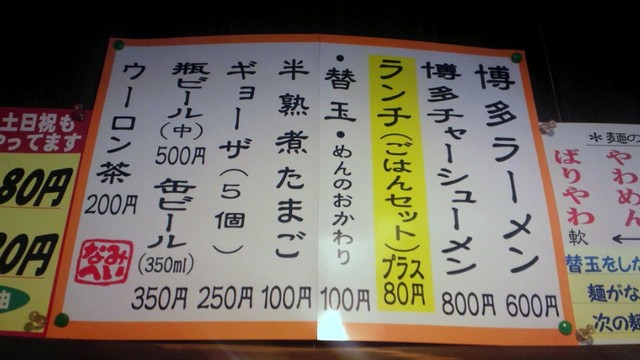 博多ラーメン 600円
博多チャーシューメン 800円
ランチ(ごはんセット)プラス80円
・替玉・めんのおかわり 100円
半熟煮たまご 100円
ギョーザ(5個) 250円
瓶ビール(中) 500円
缶ビール(350ml) 350円
ウーロン茶 200円
なみへい
土日祝も
やってます
80円
30円
*麺の
やわめん
ばりやわ
軟 ←
替玉をした
麺がな
次の麺